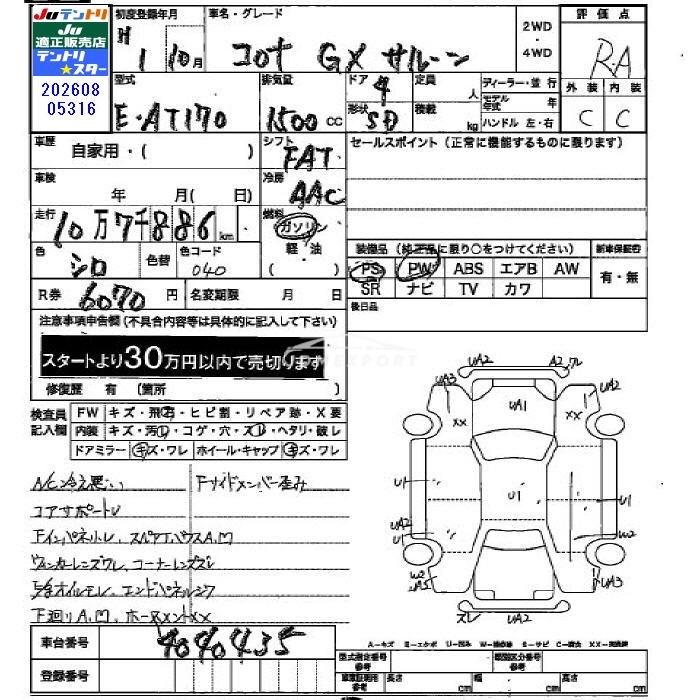 Juテントリ
Ju
適正販売店
テントリ
★スター
202608
05316
初度登録年月
H 1 10月
車名・グレード
コロナ GX サルーン
2WD
・
4WD
評価点
R・A
外装 内装
C C
型式
E・AT170
排気量
1500 cc
ドア
4
形状
SD
定員
人
積載
kg
ディーラー・並行
モデル年式 年
ハンドル 左・右
車歴
自家用・( )
シフト
FAT
セールスポイント(正常に機能するものに限ります)
車検
年 月(日)
冷房
AAC
走行
10万7千886km
燃料
ガソリン
軽・油
( )
色
シロ
色替
色コード
040
装備品(純正品に限り○をつけてください)
新車保証書
PS PW ABS エアB AW
SR ナビ TV カワ
有・無
R券 6070円
名変期限 月 日
後日品
注意事項申告欄(不具合内容等は具体的に記入して下さい)
スタートより30万円以内で売切ります
修復歴 有(箇所 )
検査員
記入欄
FW キズ・飛石・ヒビ割・リペア跡・X要
内装 キズ・汚レ・コゲ・穴・スレ・ヘタリ・破レ
ドアミラー キズ・ワレ ホイール・キャップ キズ・ワレ
A/C冷え悪い Fサイドメンバー歪み
コアサポートU
Fインパネ小レ、スペアTハウスA、M
ウィンカーレンズワレ、コーナーレンズズレ
オイルモレ、エンドパネルシワ
下廻りA、M、
車台番号 4040435
登録番号
UA2 A2 ワレ
UA3 UA2
XX UA1 XX
U1 U1 U1
UA2
U1 W2
W2
UA5 UA3
ズレ UA2
A-キズ E-エクボ U-凹み W-補修跡 S-サビ C-腐食 XX-交換済
型式指定番号 類別区分番号
車庫証明用参考 長さ cm 幅 cm 高さ cm